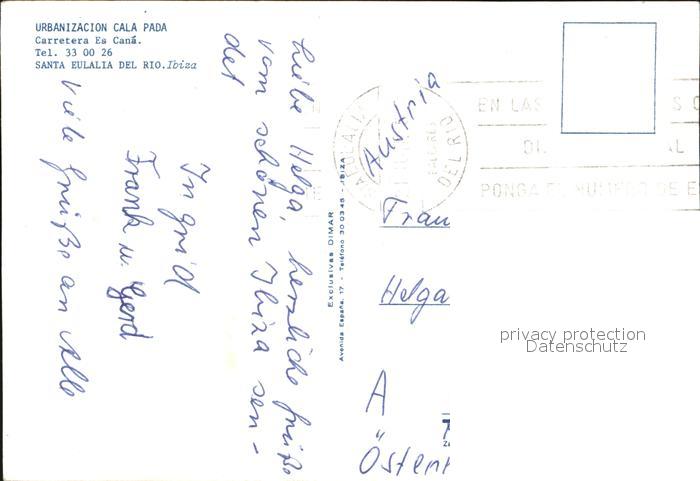 URBANIZACION CALA PADA
Carretera Es Caná.
Tel. 33 00 26
SANTA EULALIA DEL RIO. Ibiza
liebe Helga, herzliche Grüße
vom schönen Ibiza sen-
det
Ingrid
Frank u. Gerd
viele Grüße an Alle
Exclusivas DIMAR
Avenida España, 17 - Teléfono 30 03 45 - IBIZA
Austria
EULALIA
DEL RIO
EN LAS
PONGA EL NUMERO DE
Frau
Helga
A
Österr
privacy protection
Datenschutz